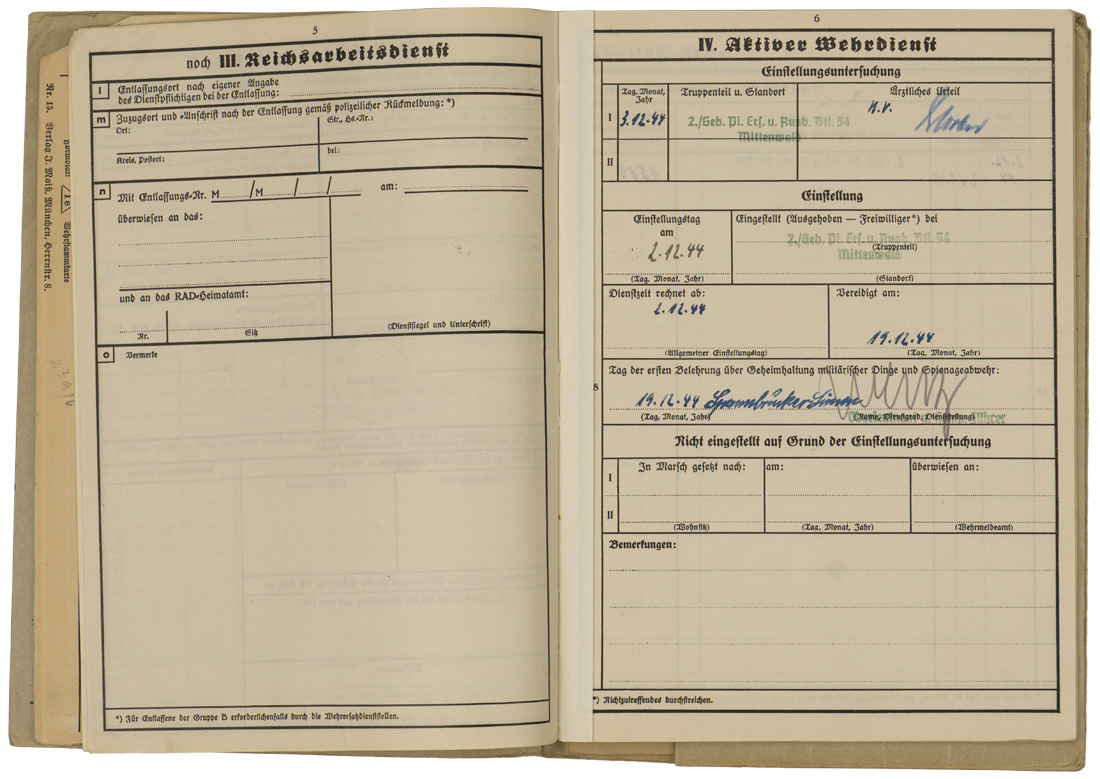 Nr. 15. Verlag J. Maiß, München, Herrnstr. 8.
Wehrstammkarte
5
noch III. Reichsarbeitsdienst
l
Entlassungsort nach eigener Angabe
des Dienstpflichtigen bei der Entlassung:
m
Zuzugsort und -Anschrift nach der Entlassung gemäß polizeilicher Rückmeldung: *)
Ort:
Str., Hs.-Nr.:
Kreis, Postort:
bei:
n
Mit Entlassungs-Nr. M / M / / am:
überwiesen an das:
und an das RAD-Heimatamt:
Nr.
Sitz
(Dienstsiegel und Unterschrift)
o
Vermerke
*) Für Entlassene der Gruppe B erforderlichenfalls durch die Wehrersatzdienststellen.
6
IV. Aktiver Wehrdienst
Einstellungsuntersuchung
Tag, Monat, Jahr
Truppenteil u. Standort
Ärztliches Urteil
I
3.12.44
2./Geb. Pi. Ers. u. Ausb. Btl. 54
Mittenwald
k.v.
II
Einstellung
Einstellungstag
am
2.12.44
(Tag, Monat, Jahr)
Eingestellt (Ausgehoben — Freiwilliger*) bei
2./Geb. Pi. Ers. u. Ausb. Btl. 54
(Truppenteil)
Mittenwald
(Standort)
Dienstzeit rechnet ab:
2.12.44
(Allgemeiner Einstellungstag)
Vereidigt am:
19.12.44
(Tag, Monat, Jahr)
8
Tag der ersten Belehrung über Geheimhaltung militärischer Dinge und Spionageabwehr:
19.12.44
(Tag, Monat, Jahr)
(Name, Dienstgrad, Dienststellung)
Nicht eingestellt auf Grund der Einstellungsuntersuchung
In Marsch gesetzt nach:
am:
überwiesen an:
I
II
(Wohnsitz)
(Tag, Monat, Jahr)
(Wehrmeldeamt)
Bemerkungen:
*) Nichtzutreffendes durchstreichen.